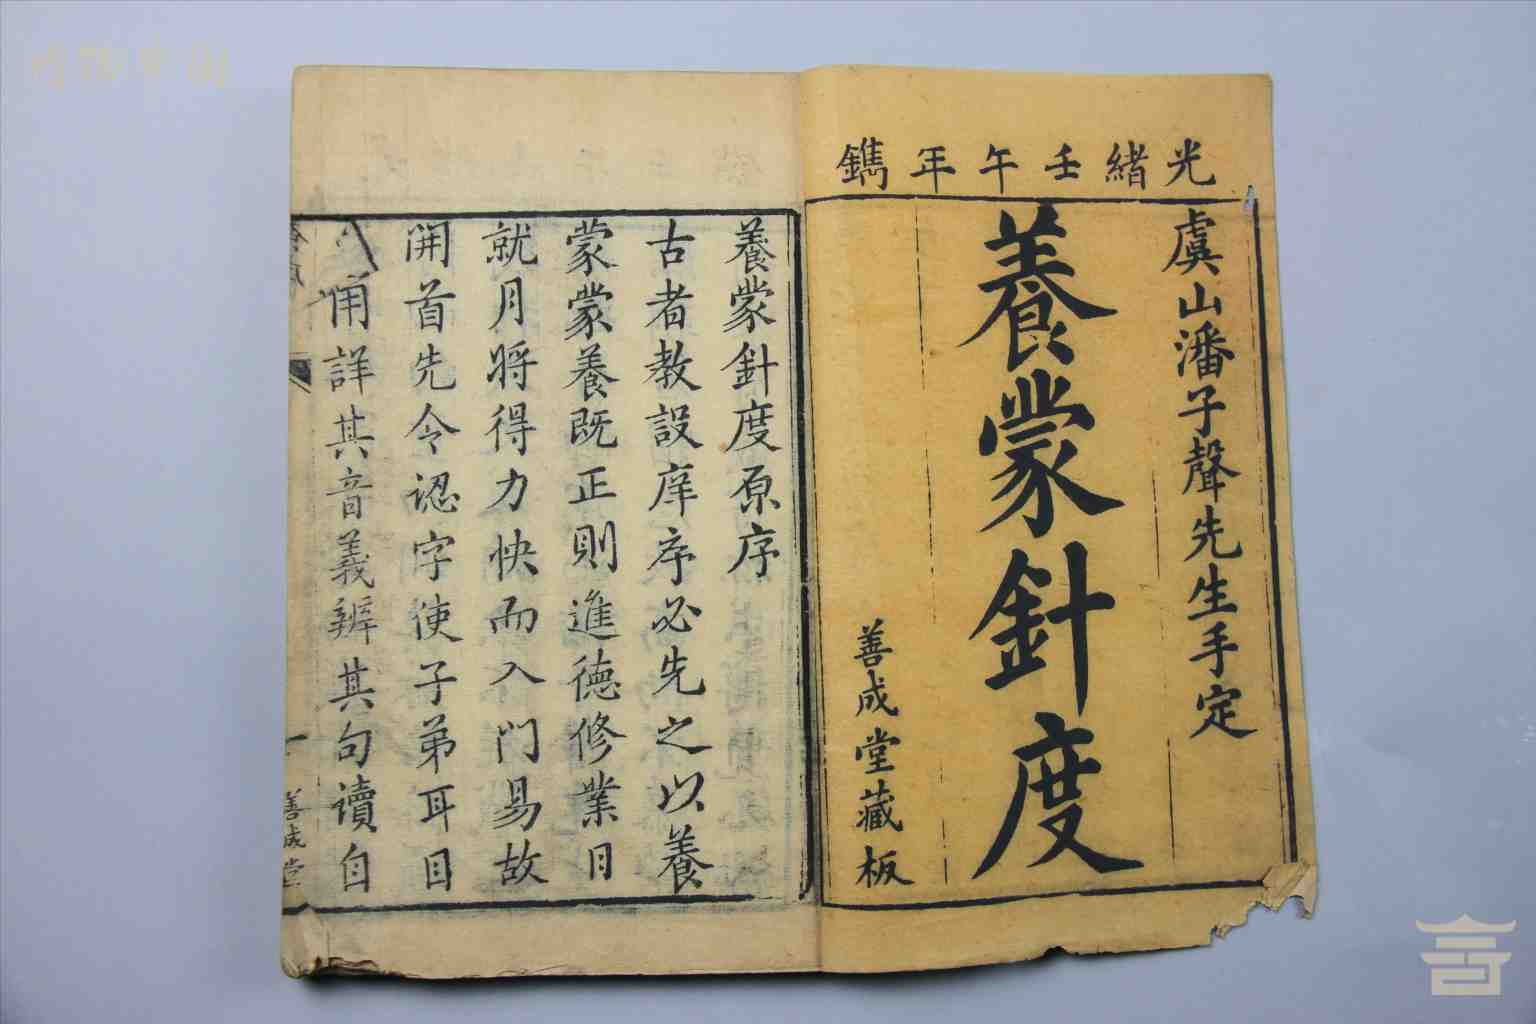 光緒壬午年鐫
虞山潘子聲先生手定
養蒙針度
善成堂藏板
養蒙針度原序
古者教設庠序必先之以養
蒙蒙養既正則進德修業日
就月將得力快而入門易故
開首先令認字使子弟耳目
詳其音義辨其句讀自
善成堂